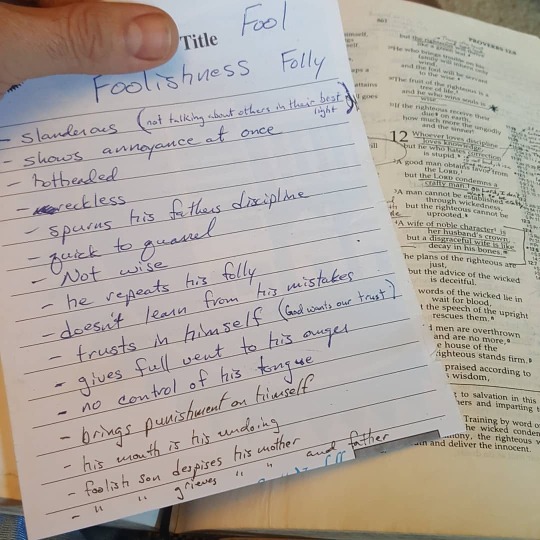 Title
Fool
Foolishness Folly
- slanderous (not talking about others in their best light)
- shows annoyance at once
- hotheaded
- reckless
- spurns his fathers discipline
- quick to quarrel
- Not wise
- he repeats his folly
- doesn't learn from his mistakes
- trusts in himself (God wants our trust)
- gives full vent to his anger
- no control of his tongue
- brings punishment on himself
- his mouth is his undoing
- foolish son despises his mother
- " " grieves " " and father
661
PROVERBS 12:8
but the righteous will
like a green leaf.
He who brings trouble on his
family will inherit only
wind,
and the fool will be servant
to the wise.
The fruit of the righteous is a
tree of life,
and he who wins souls is
If the righteous receive their
due on earth,
how much more the ungodly
and the sinner!
12 Whoever loves discipline
loves knowledge,
but he who hates correction
is stupid.
A good man obtains favor from
the LORD,
but the LORD condemns a
crafty man.
A man cannot be established
through wickedness,
but the righteous cannot be
uprooted.
A wife of noble character is
her husband's crown,
but a disgraceful wife is like
decay in his bones.
The plans of the righteous are
just,
but the advice of the wicked
is deceitful.
words of the wicked lie in
wait for blood,
the speech of the upright
rescues them.
d men are overthrown
and are no more,
e house of the
righteous stands firm.
praised according to
s wisdom,
t to salvation in this
ers and imparting
Training by word o
the wicked conde
ony, the righteous
and deliver the innocent.